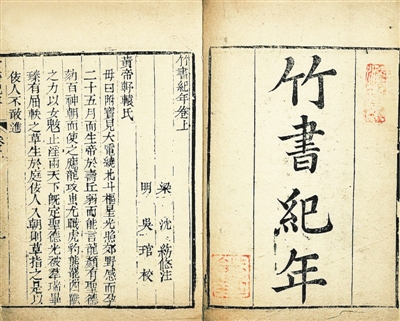 竹書紀年
竹書紀年卷上
梁 沈 約 修注
明 吳 琯 校
黄帝軒轅氏
母曰附寶見大電繞北斗樞星光照郊野感而孕
二十五月而生帝於壽丘弱而能言龍顏有聖德
劾百神朝而使之應龍攻蚩尤戰虎豹熊羆四獸
之力以女魃止淫雨天下既定聖德光被羣瑞畢
臻有屈軼之草生於庭佞人入朝則草指之是以
佞人不敢進